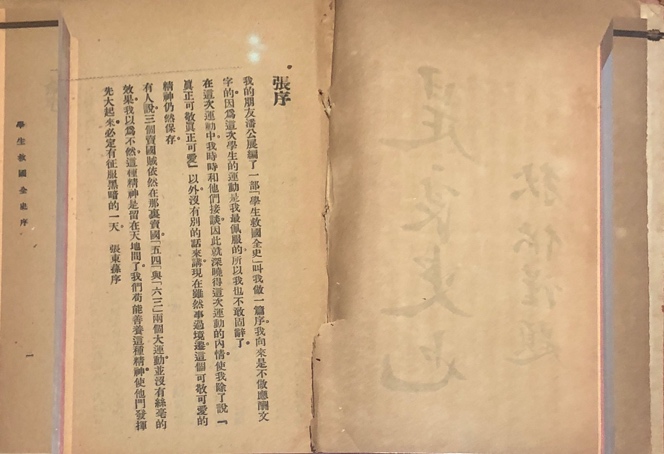 張序
我的朋友潘公展編了一部「學生救國全史」叫我做一篇序。我向來是不做應酬文
字的。因爲這次學生的運動是我最佩服的所以我也不敢固辭了。
在這次運動中我時時和他們接談因此就深曉得這次運動的內情使我除了說『
眞正可敬眞正可愛』以外沒有別的話來講現在雖然事過境遷這個可敬可愛的
精神仍然保存。
有人說三個賣國賊依然在那裏賣國「五四」與「六三」兩個大運動並沒有絲毫的
效果。我以爲不然這種精神是留在天地間了我們苟能善養這種精神使他們發揮
先大起來。必定有征服黑暗的一天。 張東蓀序
學生救國全史序
一